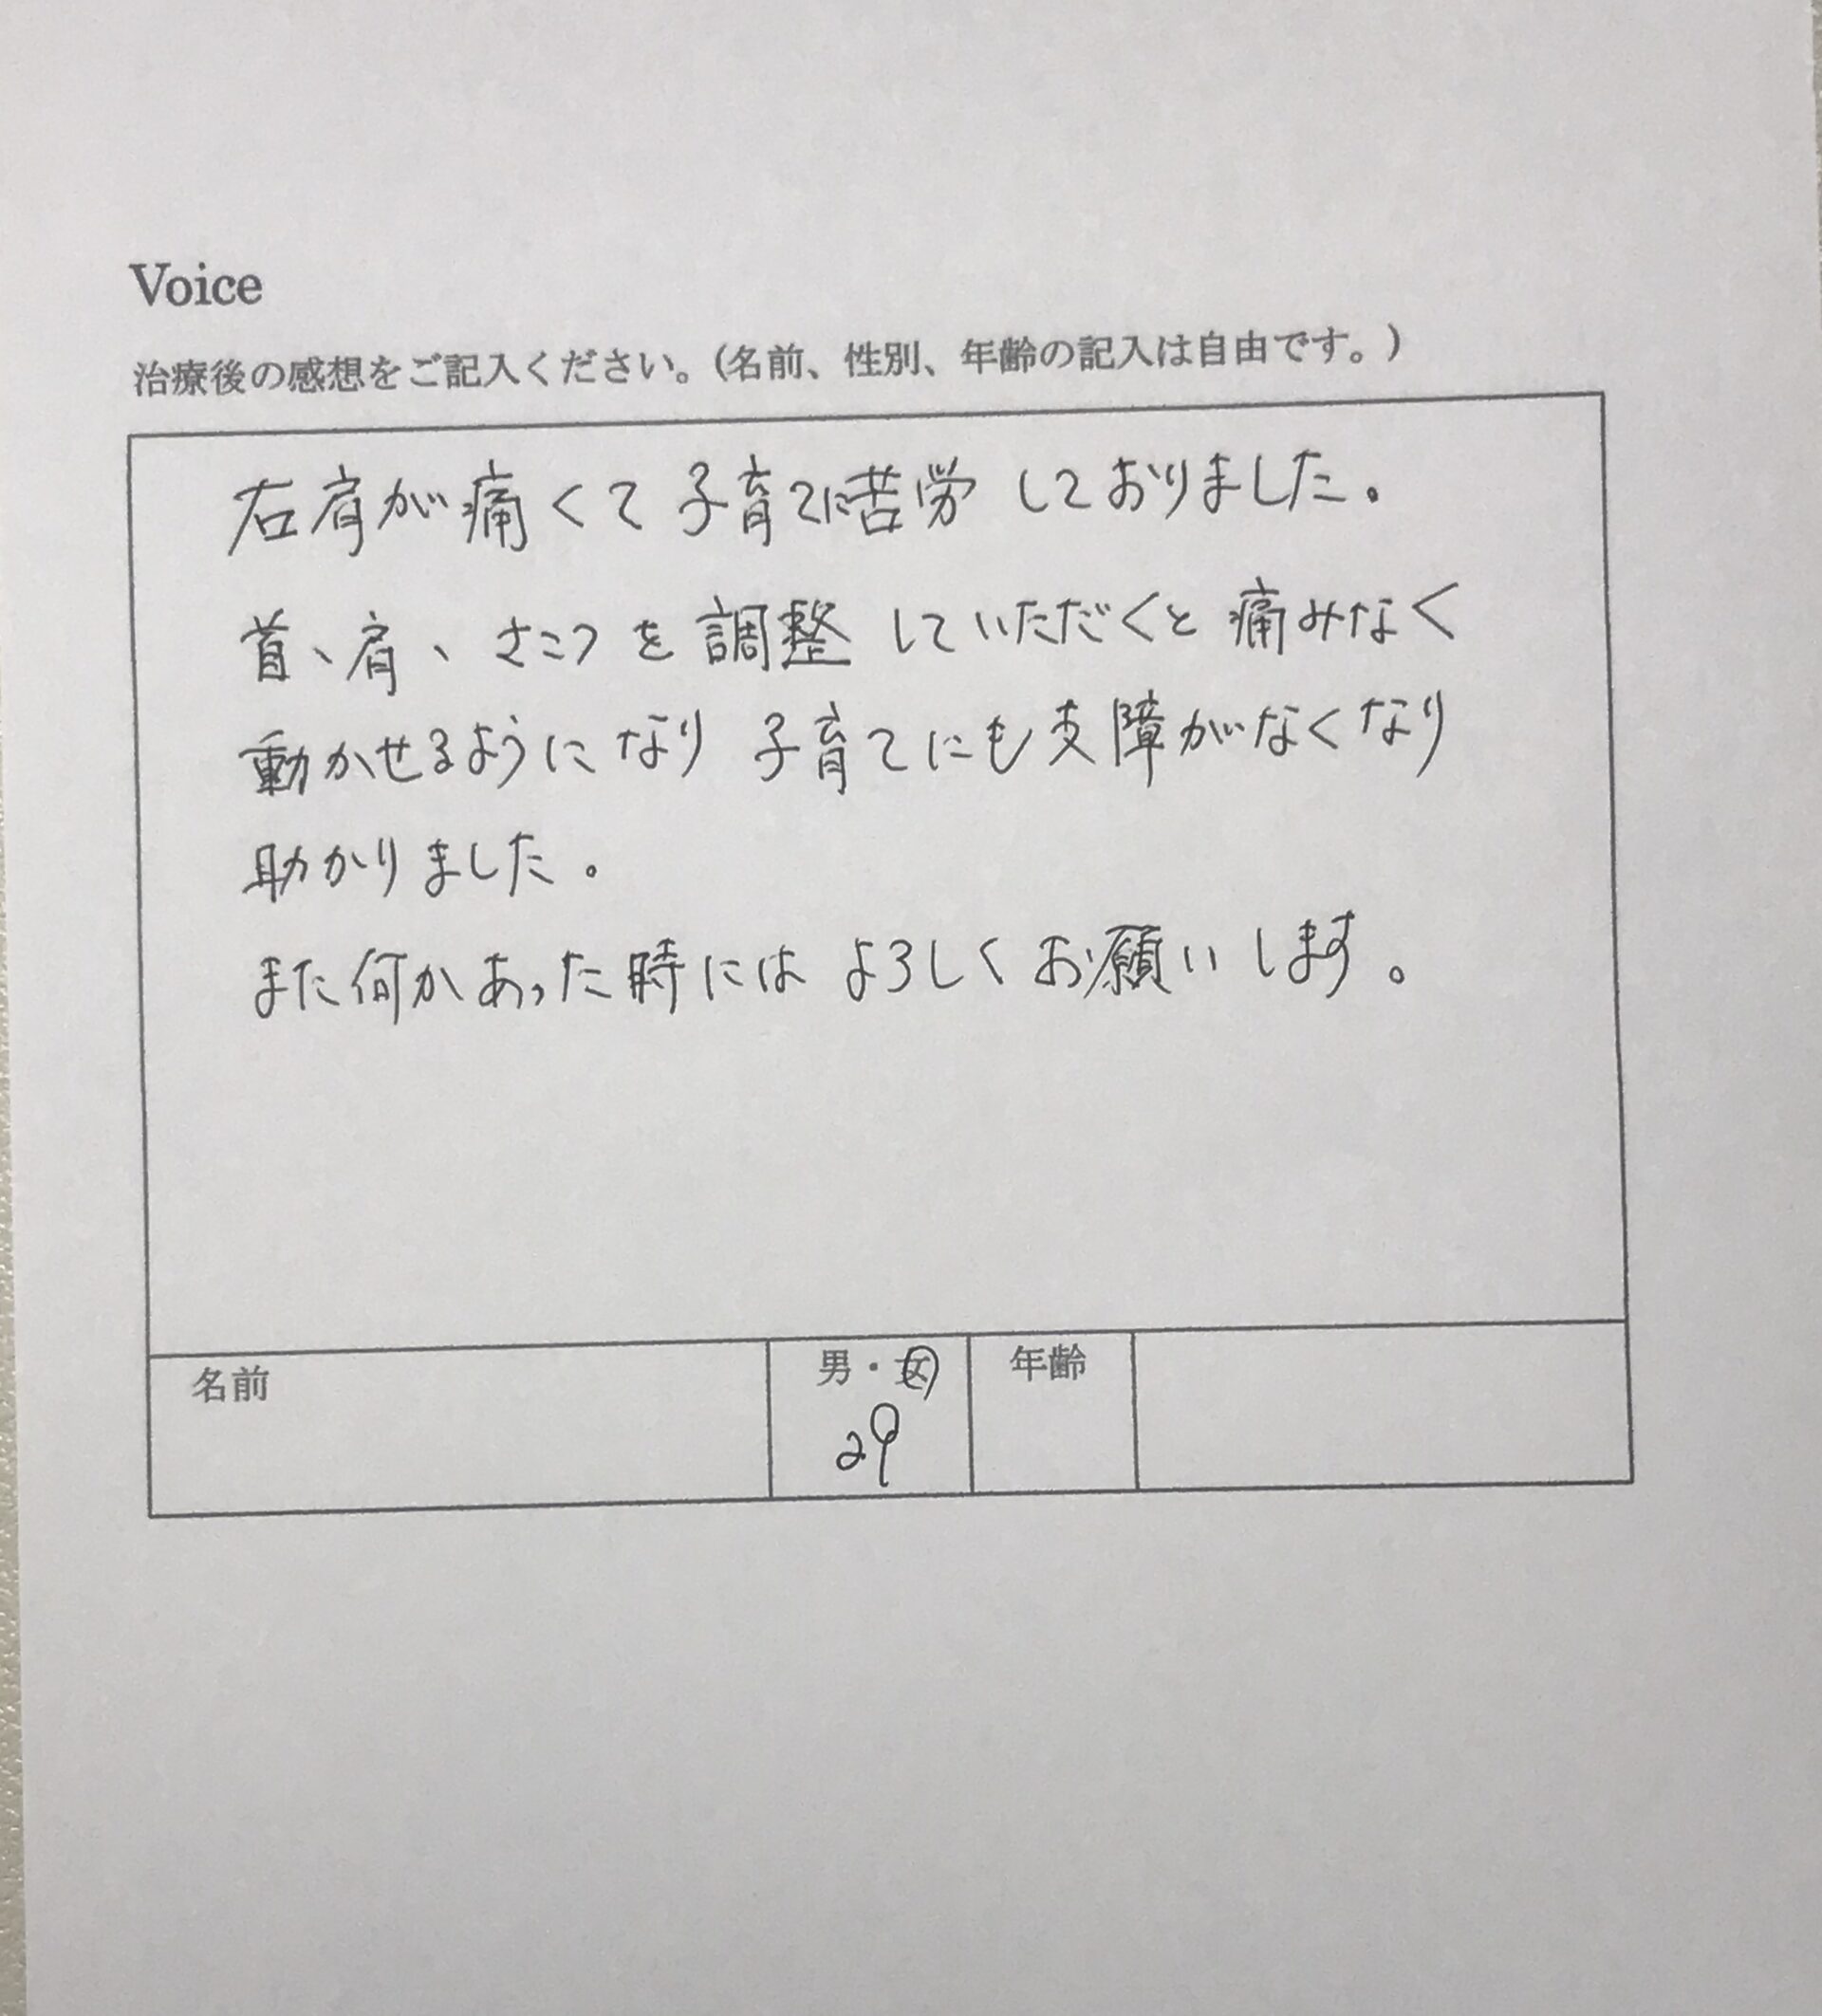 Voice
治療後の感想をご記入ください。(名前、性別、年齢の記入は自由です。)
右肩が痛くて子育てに苦労しておりました。
首、肩、さこつを調整していただくと痛みなく
動かせるようになり子育てにも支障がなくなり
助かりました。
また何かあった時にはよろしくお願いします。
名前 男・女 年齢
29